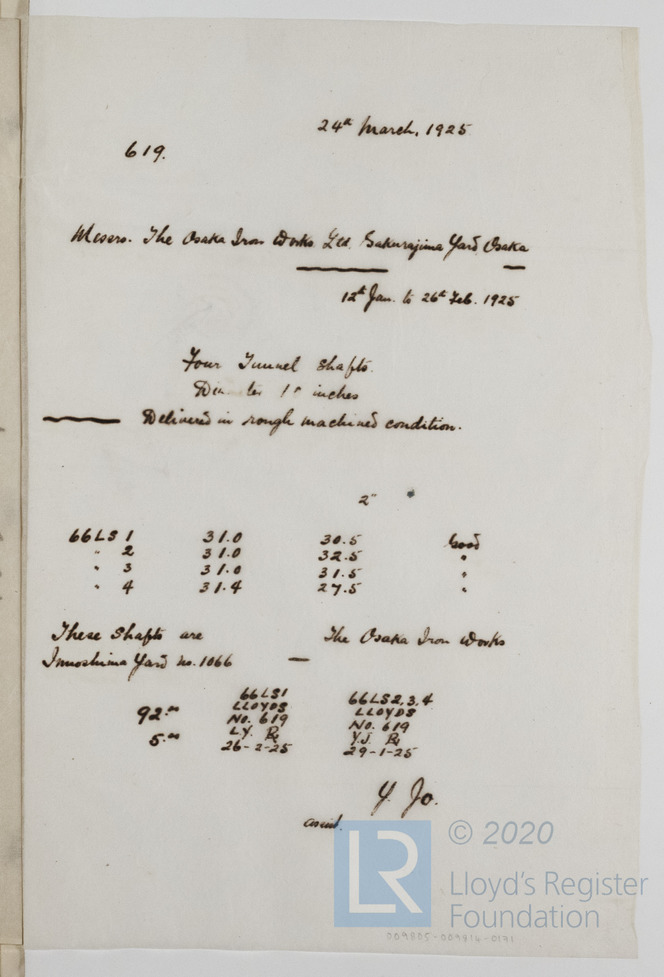 24th March, 1925
619.
Messrs. The Osaka Iron Works Ltd. Sakurajima Yard Osaka
12th Jan. to 26th Feb. 1925
Four Tunnel Shafts.
inches
Delivered in rough machined condition.
2"
66LS 1 31.0 30.5 Good
" 2 31.0 32.5 "
" 3 31.0 31.5 "
" 4 31.4 27.5 "
These Shafts are The Osaka Iron Works
Innoshima Yard no. 1066 —
66LS1 66LS2,3,4
92.00 LLOYDS LLOYDS
No. 619 No. 619
5.00 LY. Y.J.
26-2-25 29-1-25
Y. Jo.
LR
© 2020
Lloyd's Register
Foundation
009805-009814-0171